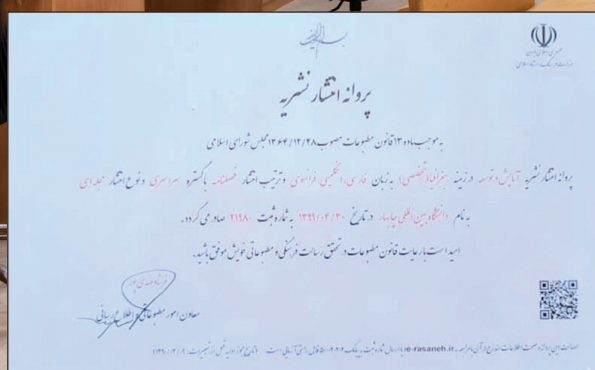 جمهوری اسلامی ایران
پروانه انتشار نشریه
به موجب ماده ۱۳ قانون مطبوعات مصوب ۱۳۶۴/۱۲/۲۸ مجلس شورای اسلامی
پروانه انتشار نشریه آمایش و توسعه در زمینه جغرافیا(تخصصی) به زبان فارسی، انگلیسی، فرانسوی و ترتیب انتشار فصلنامه با گستره سراسری و نوع انتشار مجله‌ای
به نام دانشگاه بین المللی چابهار در تاریخ ۱۳۹۹/۰۴/۳۰ به شماره ثبت ۲۱۹۸۰ صادر می‌گردد.
امید است با رعایت قانون مطبوعات در تحقق رسالت فرهنگی و مطبوعاتی خویش موفق باشید.
معاون امور مطبوعاتی و اطلاع رسانی
e-rasaneh.ir